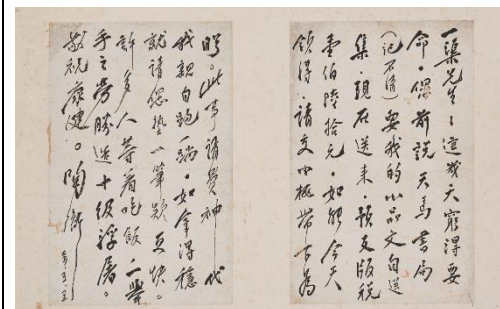 一渠先生：這幾天窮得要
命。前說天馬書局
（记不清）要我的小品文自选
集，現在送来，預支版税
壹伯陸拾元。如能今天
領得，請交小桃带下为
盼。此事請費神代
我親自跑一端。如拿得穩
就請您墊一筆款更快。
許多人等着吃飯，一舉
手之勞勝造十级浮屠。
敬祝康健。陶